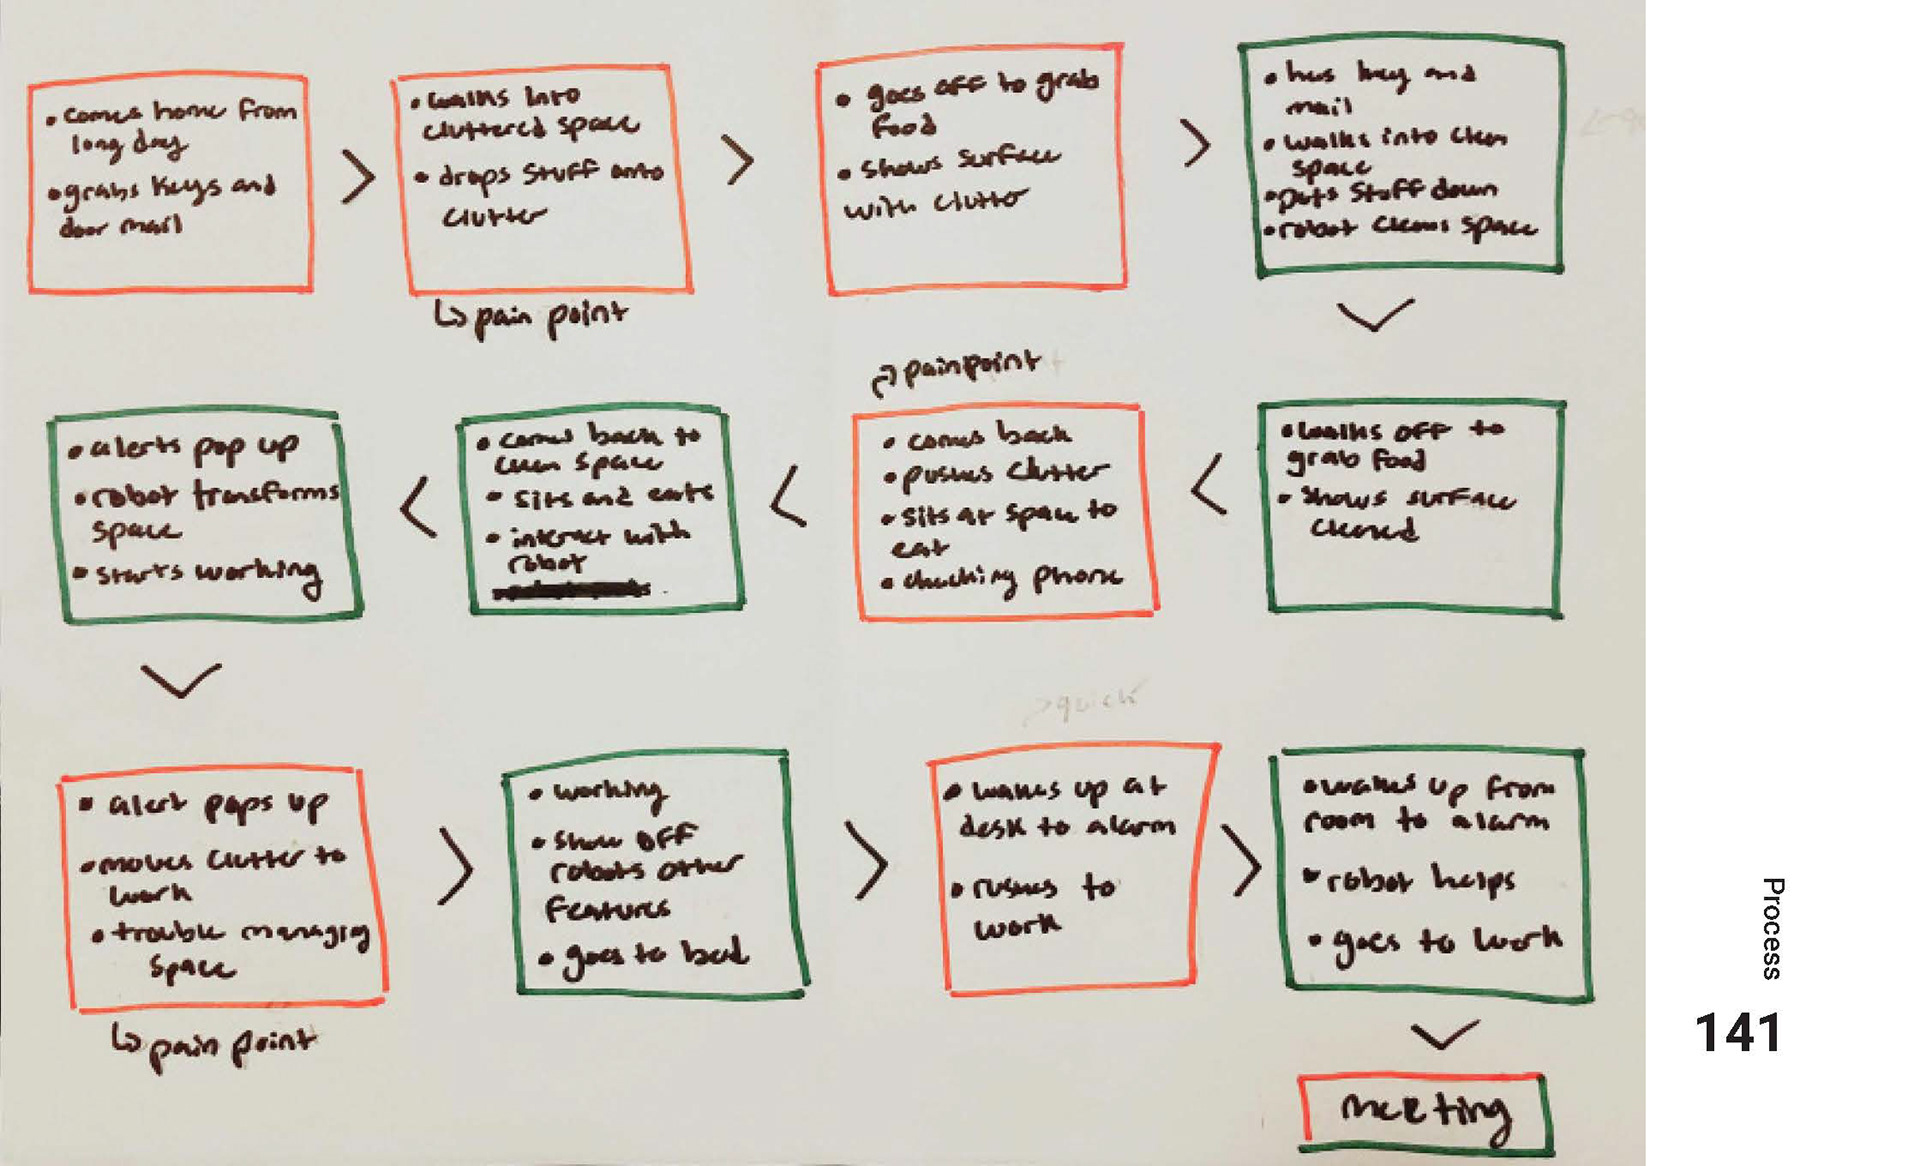 • comes home from
long day
• grabs keys and
door mail
>
• walks into
cluttered space
• drops stuff onto
clutter
↳ pain point
>
• goes off to grab
food
• shows surface
with clutter
>
• has key and
mail
• walks into clean
space
• puts stuff down
• robot cleans space
• walks off to
grab food
• shows surface
cleaned
<
painpoint
• comes back
• pushes clutter
• sits at space to
eat
• checking phone
<
• comes back to
clean space
• sits and eats
• interact with
robot
<
• alerts pop up
• robot transforms
space
• starts working
• alert pops up
• moves clutter to
work
• trouble managing
space
↳ pain point
>
• working
• show off
robots other
features
• goes to bed
>
>quick
• wakes up at
desk to alarm
• rushes to
work
>
• wakes up from
room to alarm
• robot helps
• goes to work
meeting
Process
141